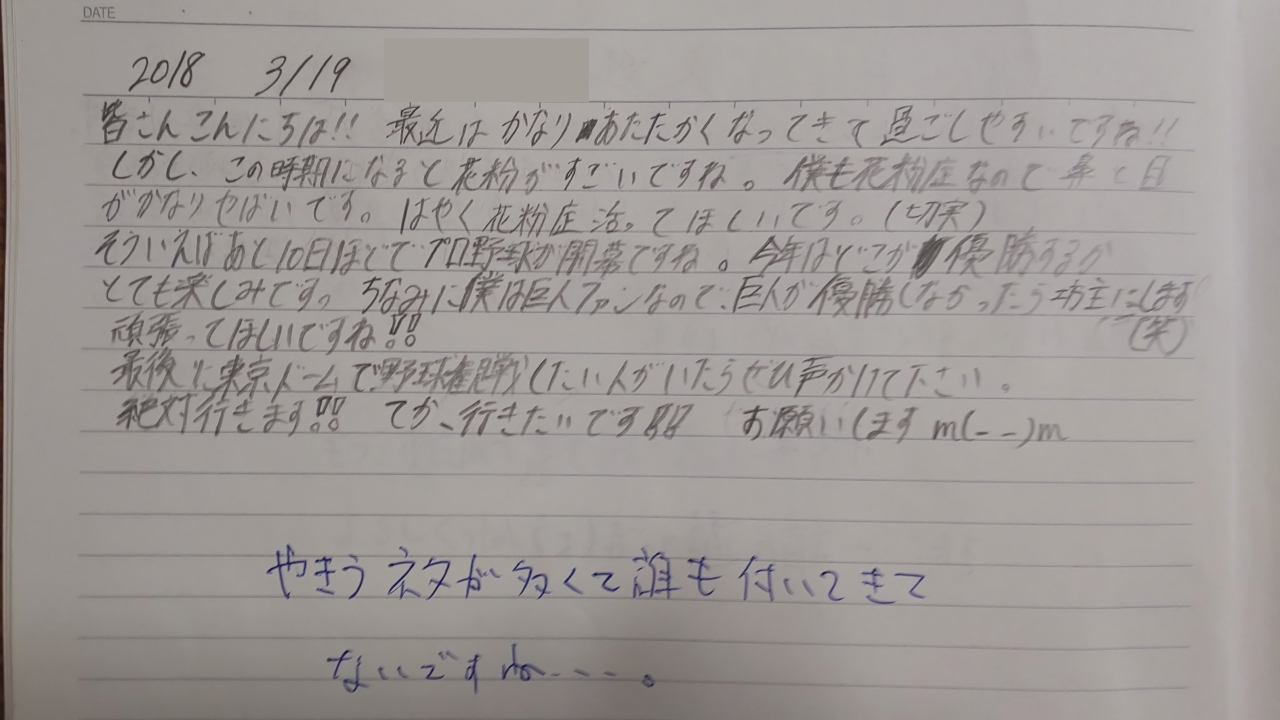 DATE
2018 3/19
皆さんこんにちは!! 最近はかなりあたたかくなってきて過ごしやすいですね!!
しかし、この時期になると花粉がすごいですね。僕も花粉症なので鼻と目
がかなりやばいです。はやく花粉症治ってほしいです。(切実)
そういえばあと10日ほどでプロ野球が開幕ですね。今年はどこが優勝するか
とても楽しみです。ちなみに僕は巨人ファンなので、巨人が優勝しなかったら坊主にします
(笑)
頑張ってほしいですね!!
最後に東京ドームで野球観戦したい人がいたらぜひ声かけて下さい。
絶対行きます!! てか、行きたいです!!!! お願いします m(--)m
やきうネタが多くて誰も付いてきて
ないですね----。